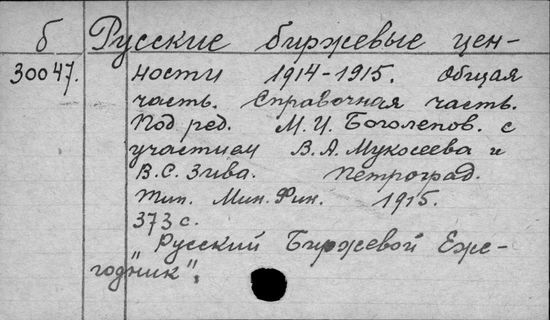 б Русские биржевые цен-
30047. ности 1914-1915. Общая
часть. Справочная часть.
Под ред. М.И. Боголепов. с
участием В.А. Мукосеева и
В.С. Зива. Петроград.
Тип. Мин. Фин. 1915.
373 с.
"Русский Биржевой Еже-
годник".